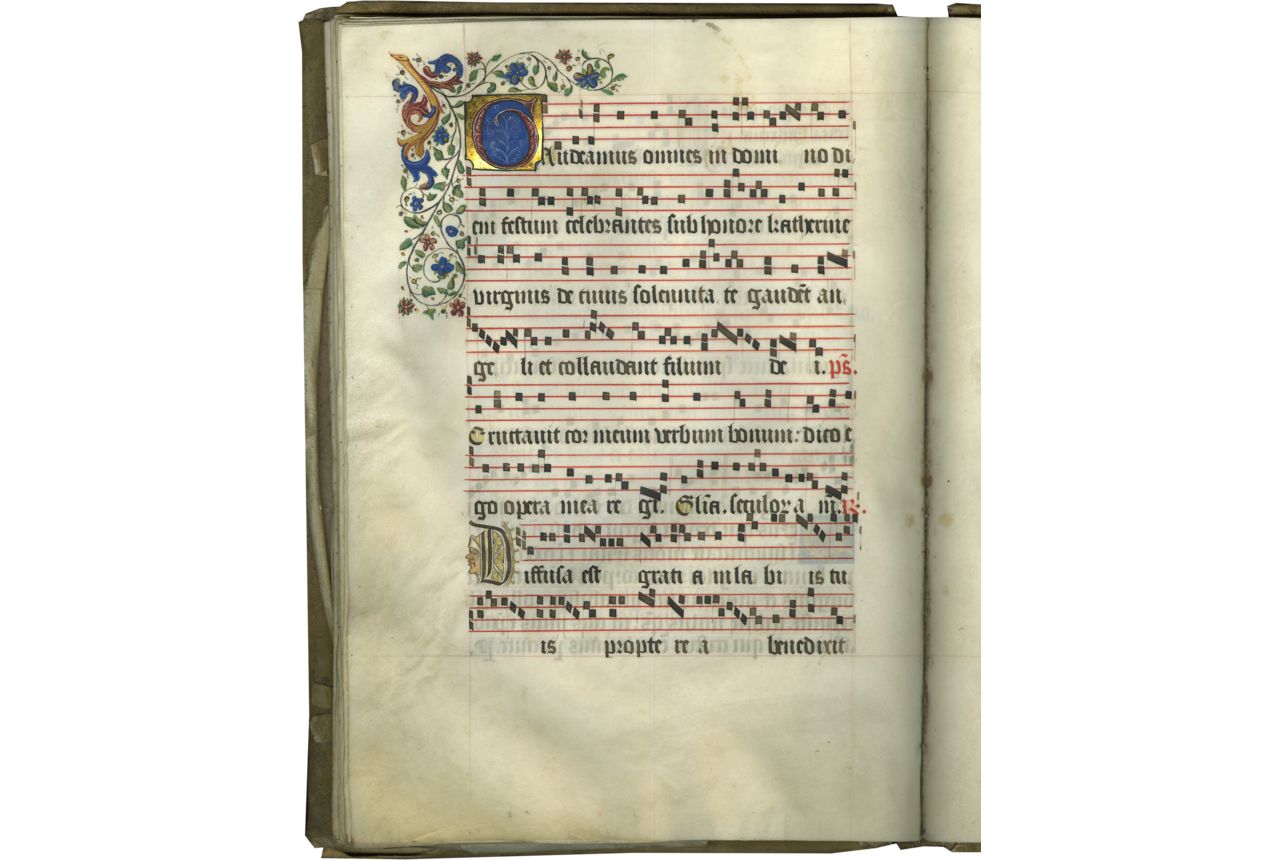 GAudeamus omnes in domi no di
em festum celebrantes sub honore katherine
virginis de cuius solennita te gaudēt an
ge li et collaudant filium de i. ps̄.
Eructavit cor meum verbum bonum: dico e
go opera mea re gi. Gl̄ia. seculor a m. R.
Diffusa est grati a in la bi is tu
is propte re a benedixit